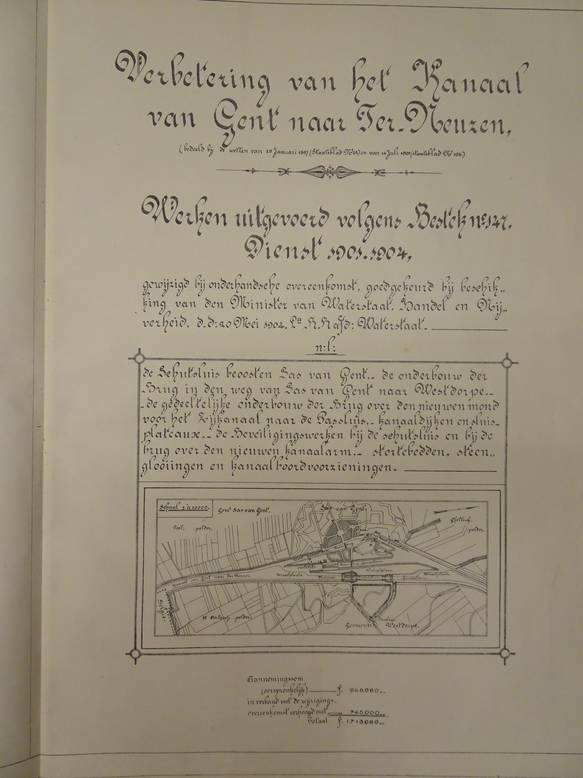 Verbetering van het Kanaal
van Gent naar Ter-Neuzen,
(bedoeld bij de wetten van 29 Januari 1897 (Staatsblad
Werken uitgevoerd volgens Bestek No. 147.
Dienst 1901-1904,
gewijzigd bij onderhandsche overeenkomst, goedgekeurd bij beschik-
king van den Minister van Waterstaat, Handel en Nij-
verheid, d.d: 20 Mei 1904, La. afd: Waterstaat.
n:l:
de Schutsluis beoosten Sas van Gent.- de onderbouw der
Brug in den weg van Sas van Gent naar Westdorpe.-
-de gedeeltelijke onderbouw der Brug over den nieuwen mond
voor het Zijkanaal naar de Passluis.- kanaaldijken en sluis-
plateaux.- de Beveiligingswerken bij de schutsluis en bij de
brug over den nieuwen kanaalarm.- stortebedden, steen-
glooiingen en kanaalboordvoorzieningen.
Schaal 1 à 20000.
Gem: Sas van Gent.
Sas van Gent
polder
polder
polder
Gemeente Westdorpe
Aannemingssom
(oorspronkelijk) f.
in verband met de wijzigings-
overeenkomst verhoogd met 745.000.-
Totaal f.